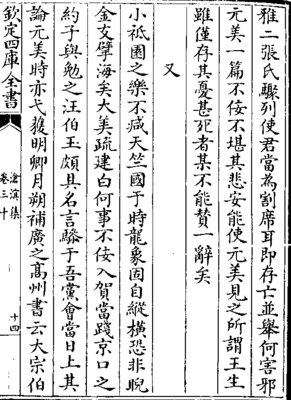 雅二張氏驟列使君當為割席耳即存亡並舉何害邪
元美一篇不佞不堪其悲安能使元美見之所謂王生
雖僅存其憂甚死者某不能贊一辭矣
又
小祗園之樂不減天竺國于時龍象固自縱橫恐非睨
金支擘海矣大美疏建白何事不佞入賀當踐京口之
約子與勉之汪伯玉頗具名言驂于吾黨會當日上其
論元美時亦弋獲明卿月朔補廣之髙州書云大宗伯
欽定四庫全書
滄溟集
卷三十
十四